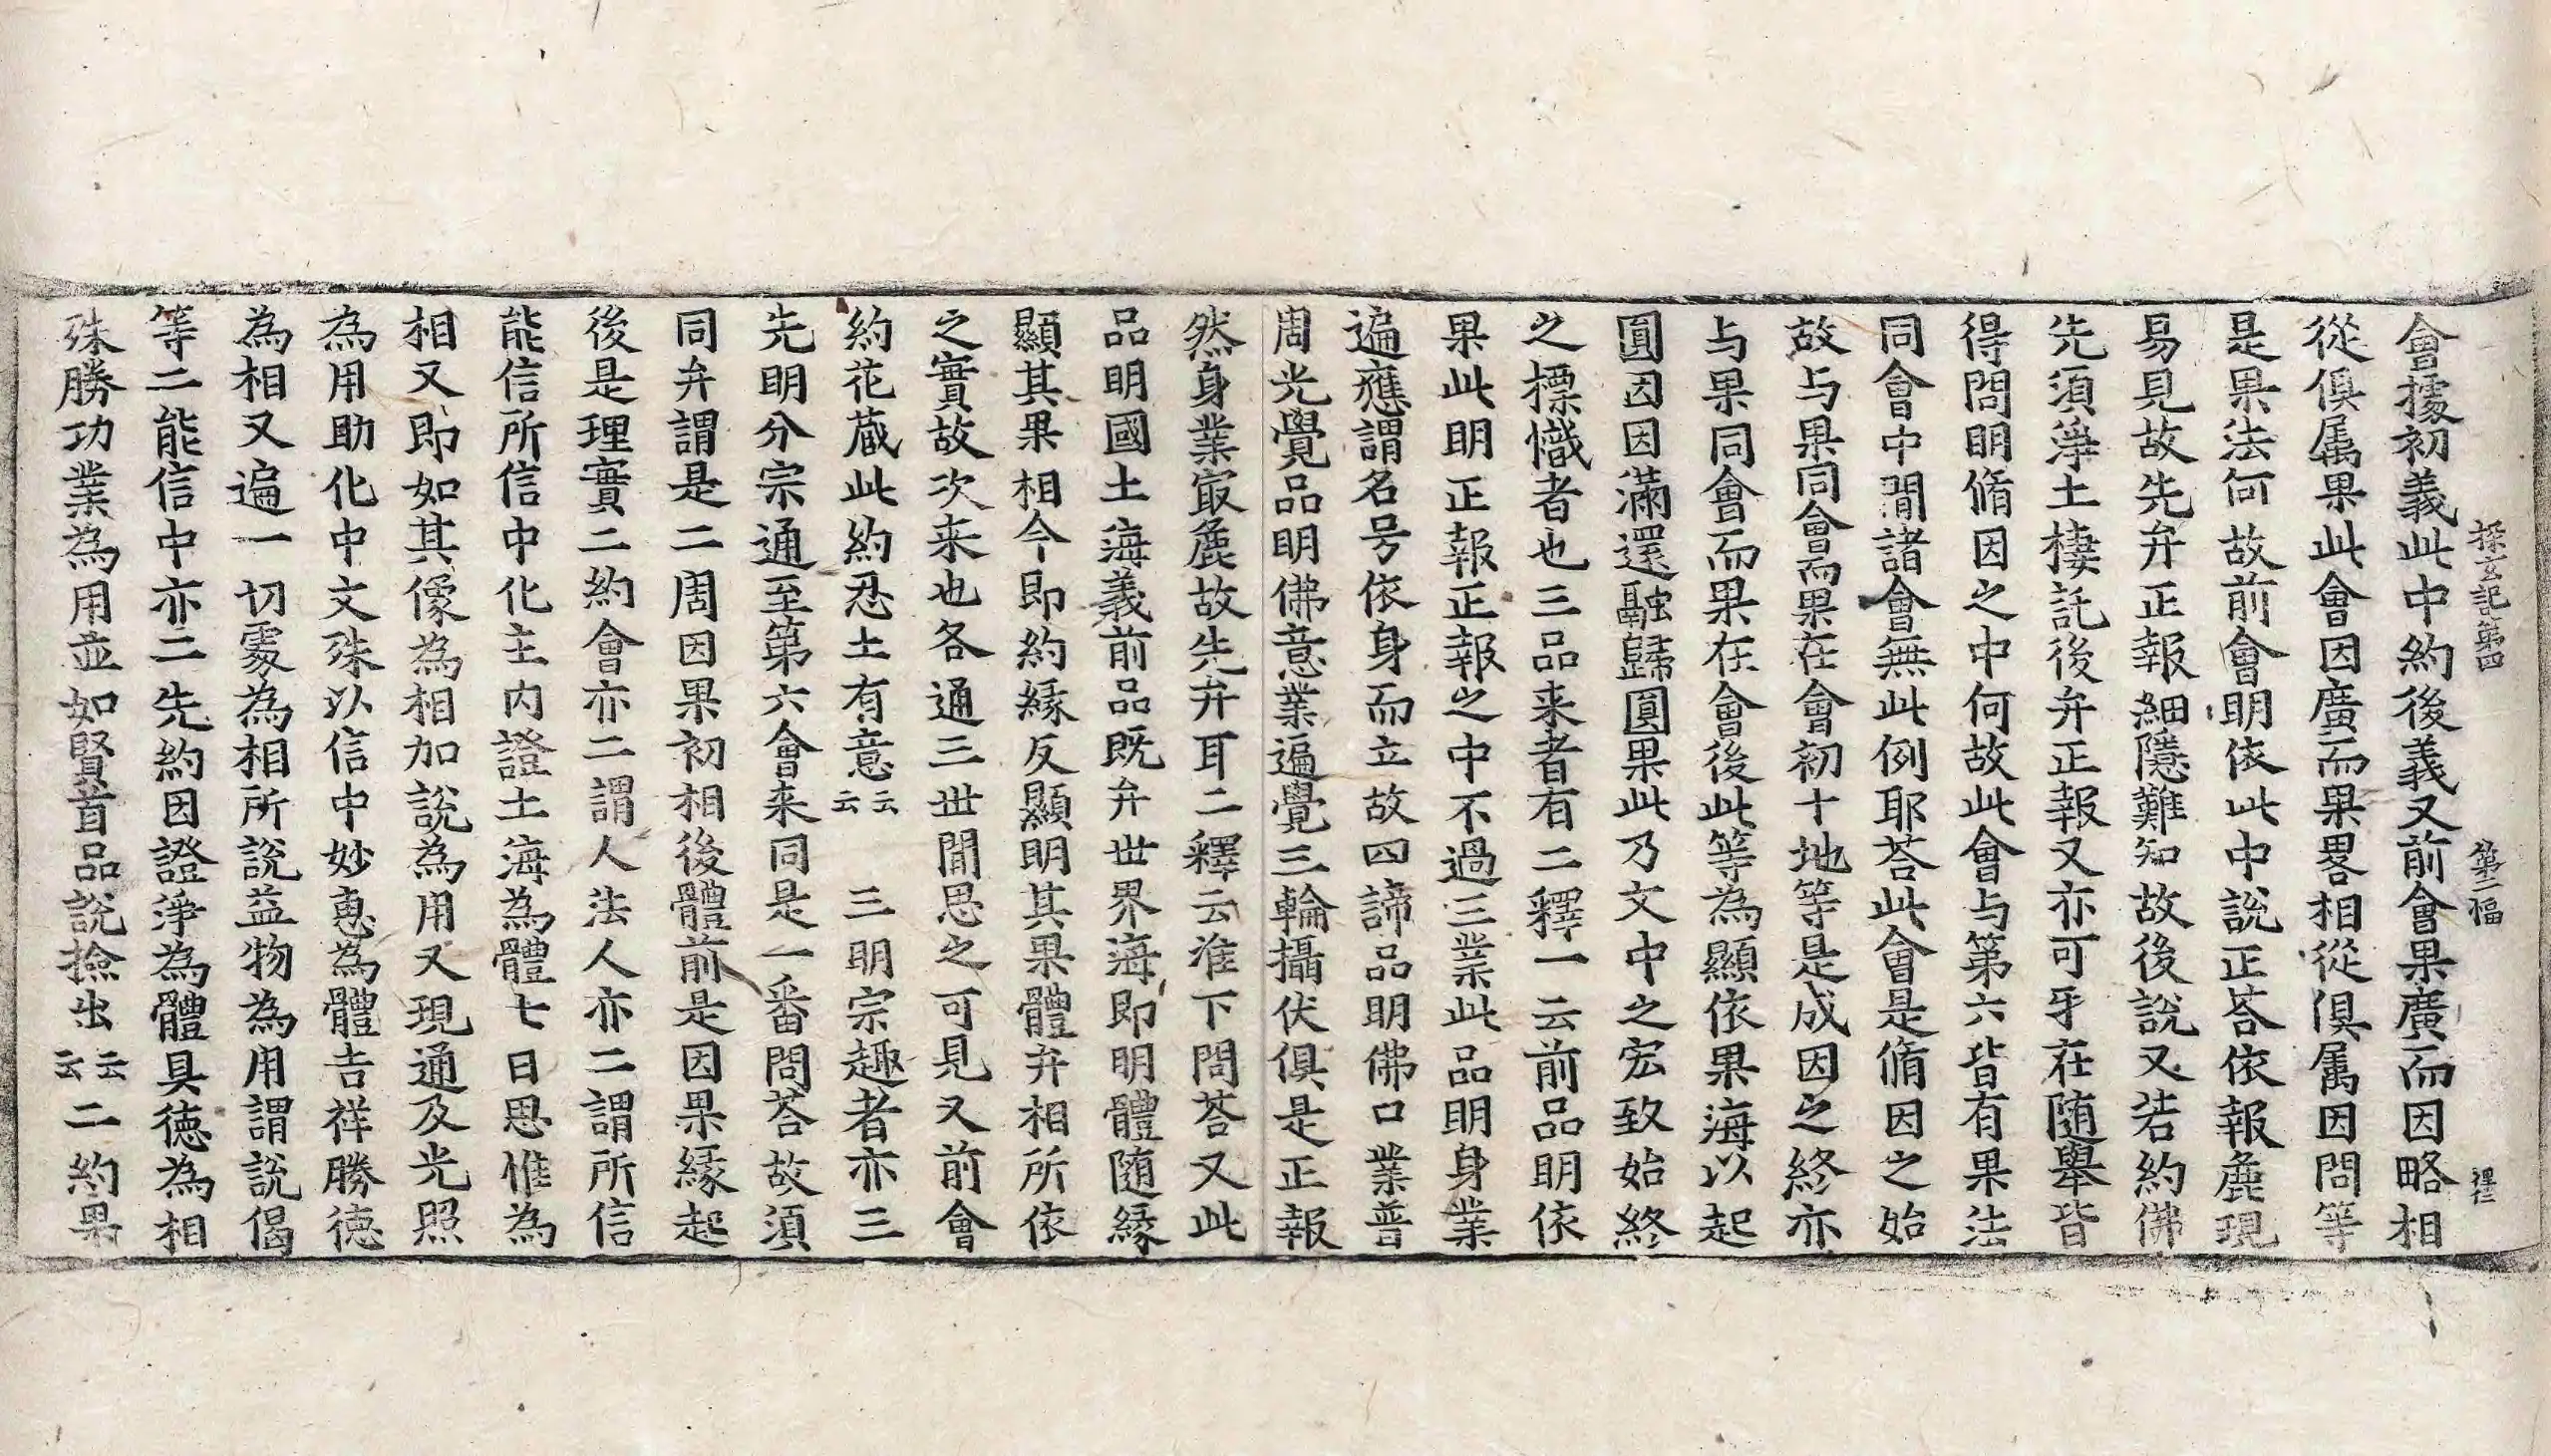 探玄記第四 第二福 禋
會據初義此中約後義又前會果廣而因略相
從俱属果此會因廣而果畧相從俱属因問等
是果法何故前會明依此中說正荅依報麁現
易見故先弁正報細隱難知故後說又若約佛
先須淨土棲託後弁正報又亦可牙在随舉皆
得問明脩因之中何故此會与第六皆有果法
同會中閒諸會無此例耶荅此會是脩因之始
故与果同會而果在會初十地等是成因之終亦
与果同會而果在會後此等為顯依果海以起
圓因因滿還融歸圓果此乃文中之宏致始終
之標幟者也三品来者有二釋一云前品明依
果此明正報正報之中不過三業此品明身業
遍應謂名号依身而立故四諦品明佛口業普
周光覺品明佛意業遍覺三輪攝伏俱是正報
然身業㝡麁故先弁耳二釋云准下問荅又此
品明國土海義前品既弁世界海即明體随緣
顯其果相今即約緣反顯明其果體弁相所依
之實故次来也各通三世閒思之可見又前會
約花蔵此約忍土有意云云 三明宗趣者亦三
先明分宗通至第六會来同是一番問荅故須
同弁謂是二周因果初相後體前是因果緣起
後是理實二約會亦二謂人法人亦二謂所信
能信所信中化主内證土海為體七日思惟為
相又即如其像為相加說為用又現通及光照
為用助化中文殊以信中妙惠為體吉祥勝徳
為相又遍一切䖏為相所說益物為用謂說偈
等二能信中亦二先約因證淨為體具徳為相
殊勝功業為用並如賢首品說撿出云云二約果